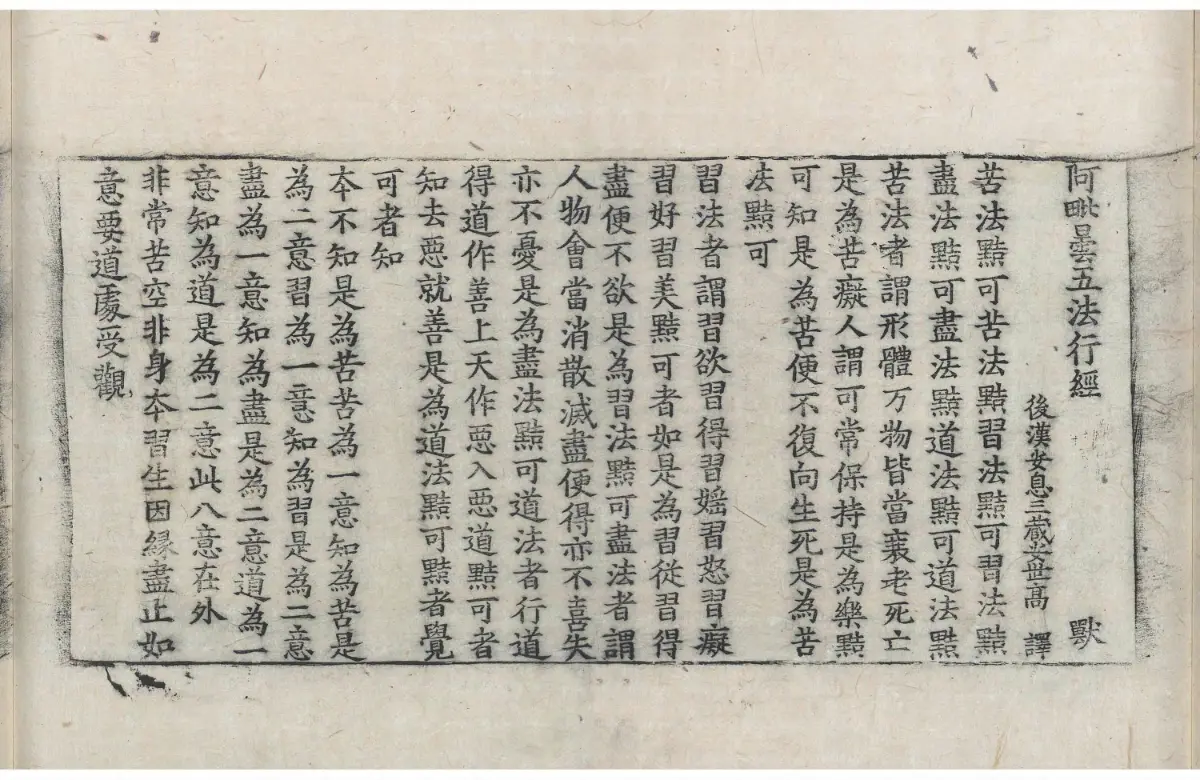 阿毗曇五法行經 獸
後漢安息三蔵安世髙 譯
苦法黠可苦法黠習法黠可習法黠
盡法黠可盡法黠道法黠可道法黠
苦法者謂形體万物皆當衰老死亡
是為苦癡人謂可常保持是為樂黠
可知是為苦便不復向生死是為苦
法黠可
習法者謂習欲習得習婬習怒習癡
習好習美黠可者如是為習從習得
盡便不欲是為習法黠可盡法者謂
人物會當消散滅盡便得亦不喜失
亦不憂是為盡法黠可道法者行道
得道作善上天作惡入惡道黠可者
知去惡就善是為道法黠可黠者覺
可者知
本不知是為苦苦為一意知為苦是
為二意習為一意知為習是為二意
盡為一意知為盡是為二意道為一
意知為道是為二意此八意在外
非常苦空非身本習生因縁盡止如
意要道處受觀